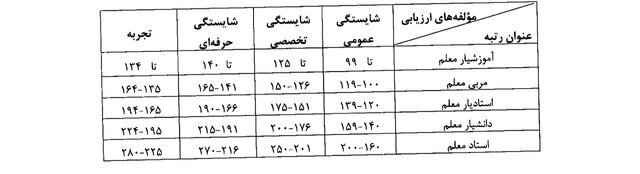 مؤلفه‌های ارزیابی
عنوان رتبه
شایستگی عمومی
شایستگی تخصصی
شایستگی حرفه‌ای
تجربه
آموزشیار معلم تا ۹۹ تا ۱۲۵ تا ۱۴۰ تا ۱۳۴
مربی معلم ۱۱۹-۱۰۰ ۱۵۰-۱۲۶ ۱۶۵-۱۴۱ ۱۶۴-۱۳۵
استادیار معلم ۱۳۹-۱۲۰ ۱۷۵-۱۵۱ ۱۹۰-۱۶۶ ۱۹۴-۱۶۵
دانشیار معلم ۱۵۹-۱۴۰ ۲۰۰-۱۷۶ ۲۱۵-۱۹۱ ۲۲۴-۱۹۵
استاد معلم ۲۰۰-۱۶۰ ۲۵۰-۲۰۱ ۲۷۰-۲۱۶ ۲۸۰-۲۲۵